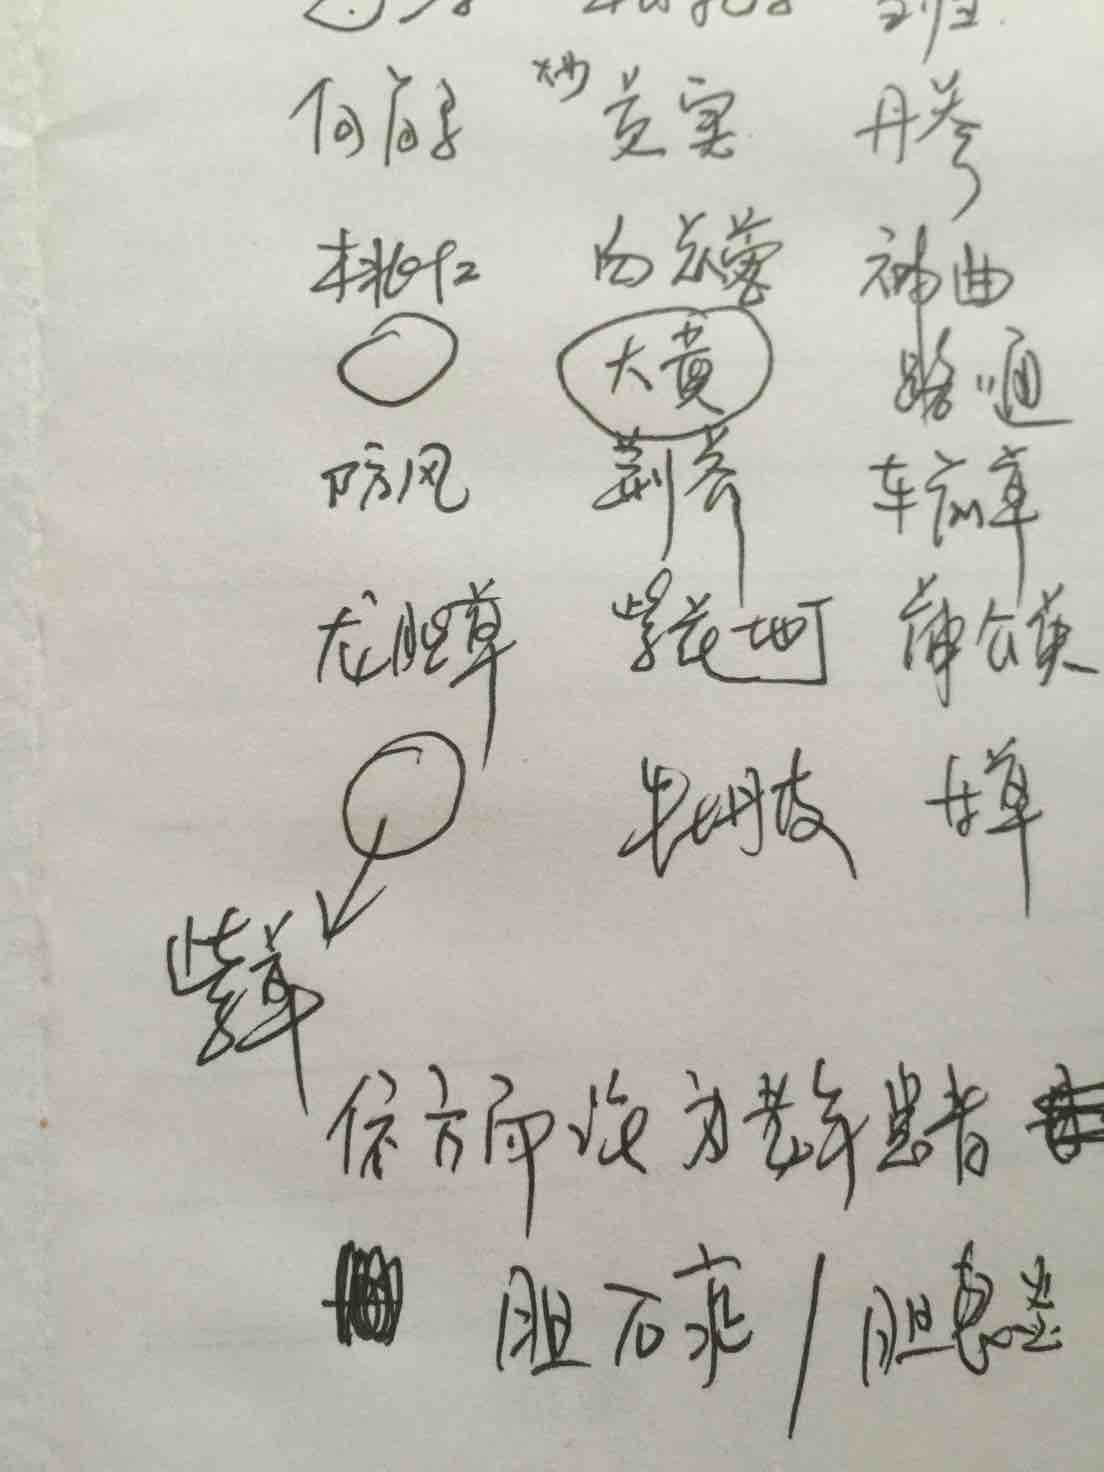 何首乌 炒芡实 丹参
桃仁 肉苁蓉 神曲
大黄 路通
防风 荆芥 车前草
龙胆草 紫花地丁 蒲公英
牡丹皮 甘草
紫草
依方而 为老年患者
胆石症/胆息差